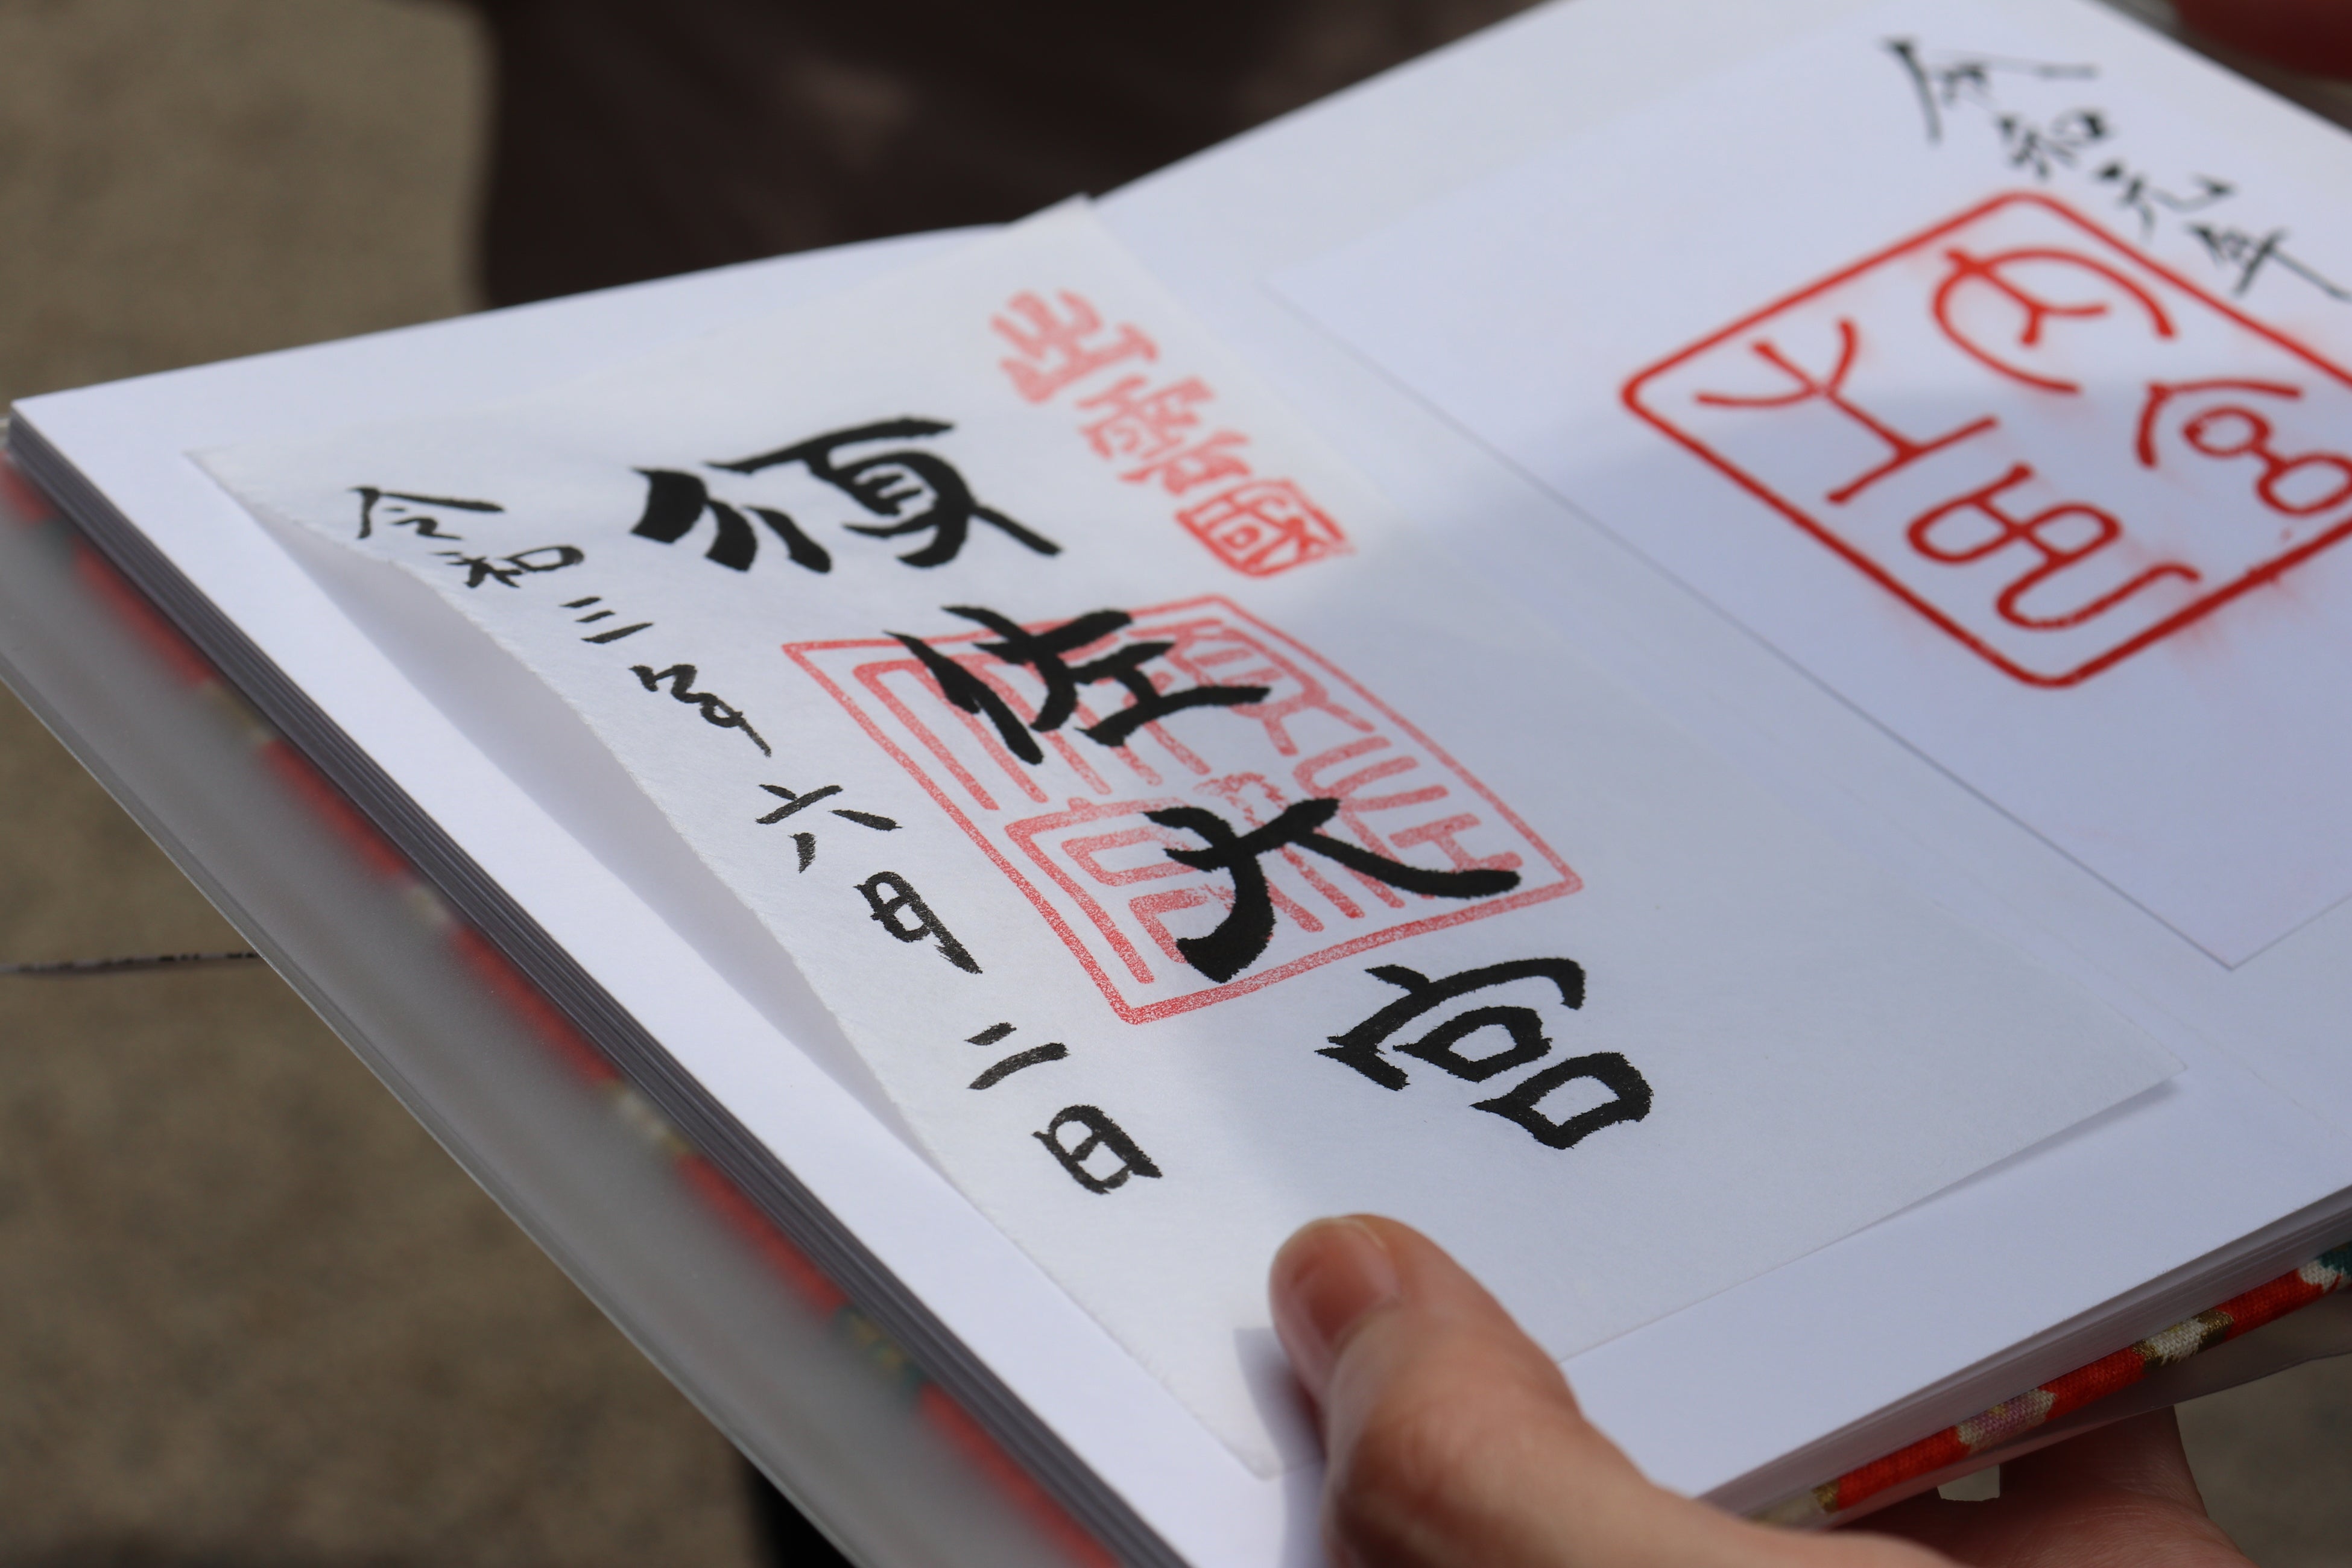 令和元年
出雲國
須佐大宮
令和三年六月二日